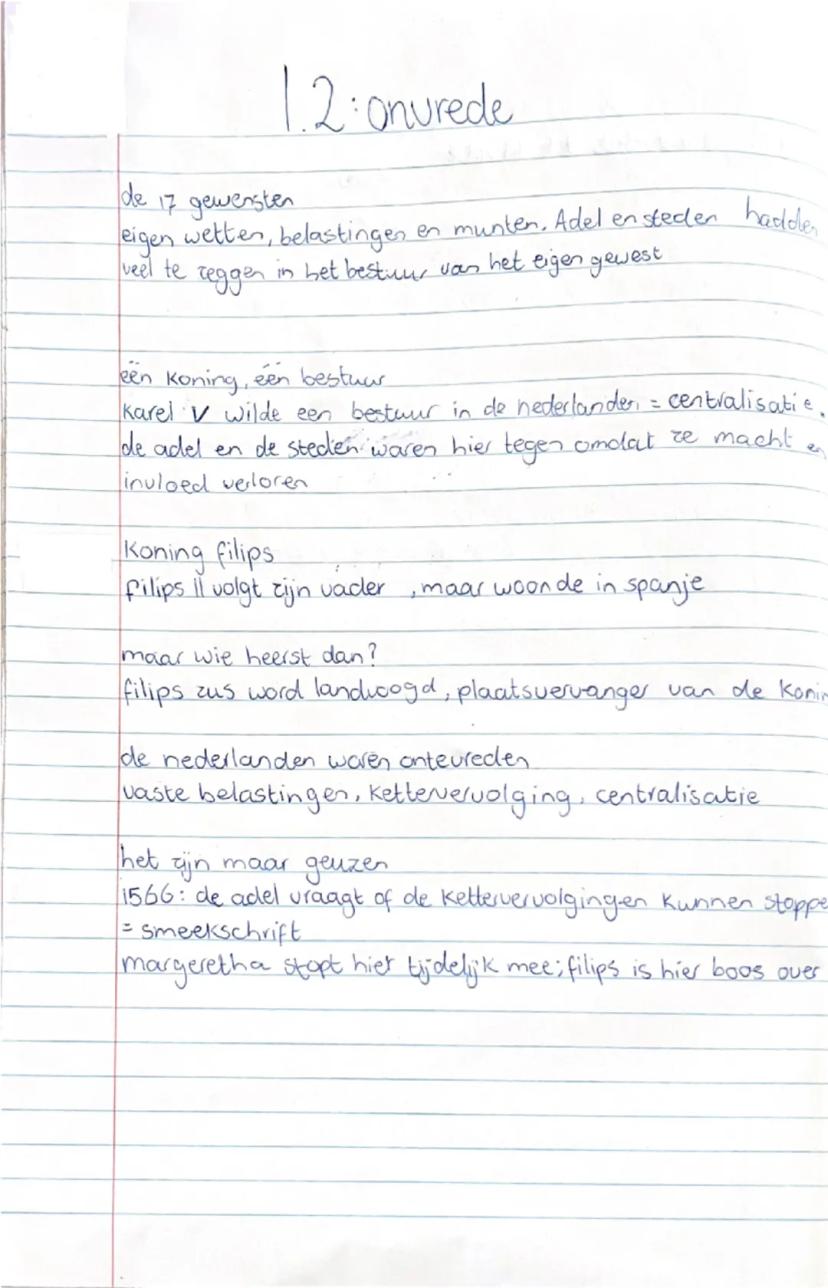 1.2: onvrede
de 17 gewensten
eigen wetten, belastingen en munten. Adel en steden hadden
veel te zeggen in het bestuur van het eigen gewest
één koning, één bestuur
Karel V wilde een bestuur in de nederlanden = centralisatie.
de adel en de steden waren hier tegen omdat ze macht en
invloed verloren
Koning filips
filips II volgt zijn vader , maar woonde in spanje
maar wie heerst dan?
filips zus word landvoogd, plaatsvervanger van de konin
de nederlanden waren ontevreden
vaste belastingen, kettervervolging, centralisatie
het zijn maar geuzen
1566: de adel vraagt of de kettervervolgingen kunnen stoppe
= smeekschrift
margeretha stopt hier tijdelijk mee; filips is hier boos over